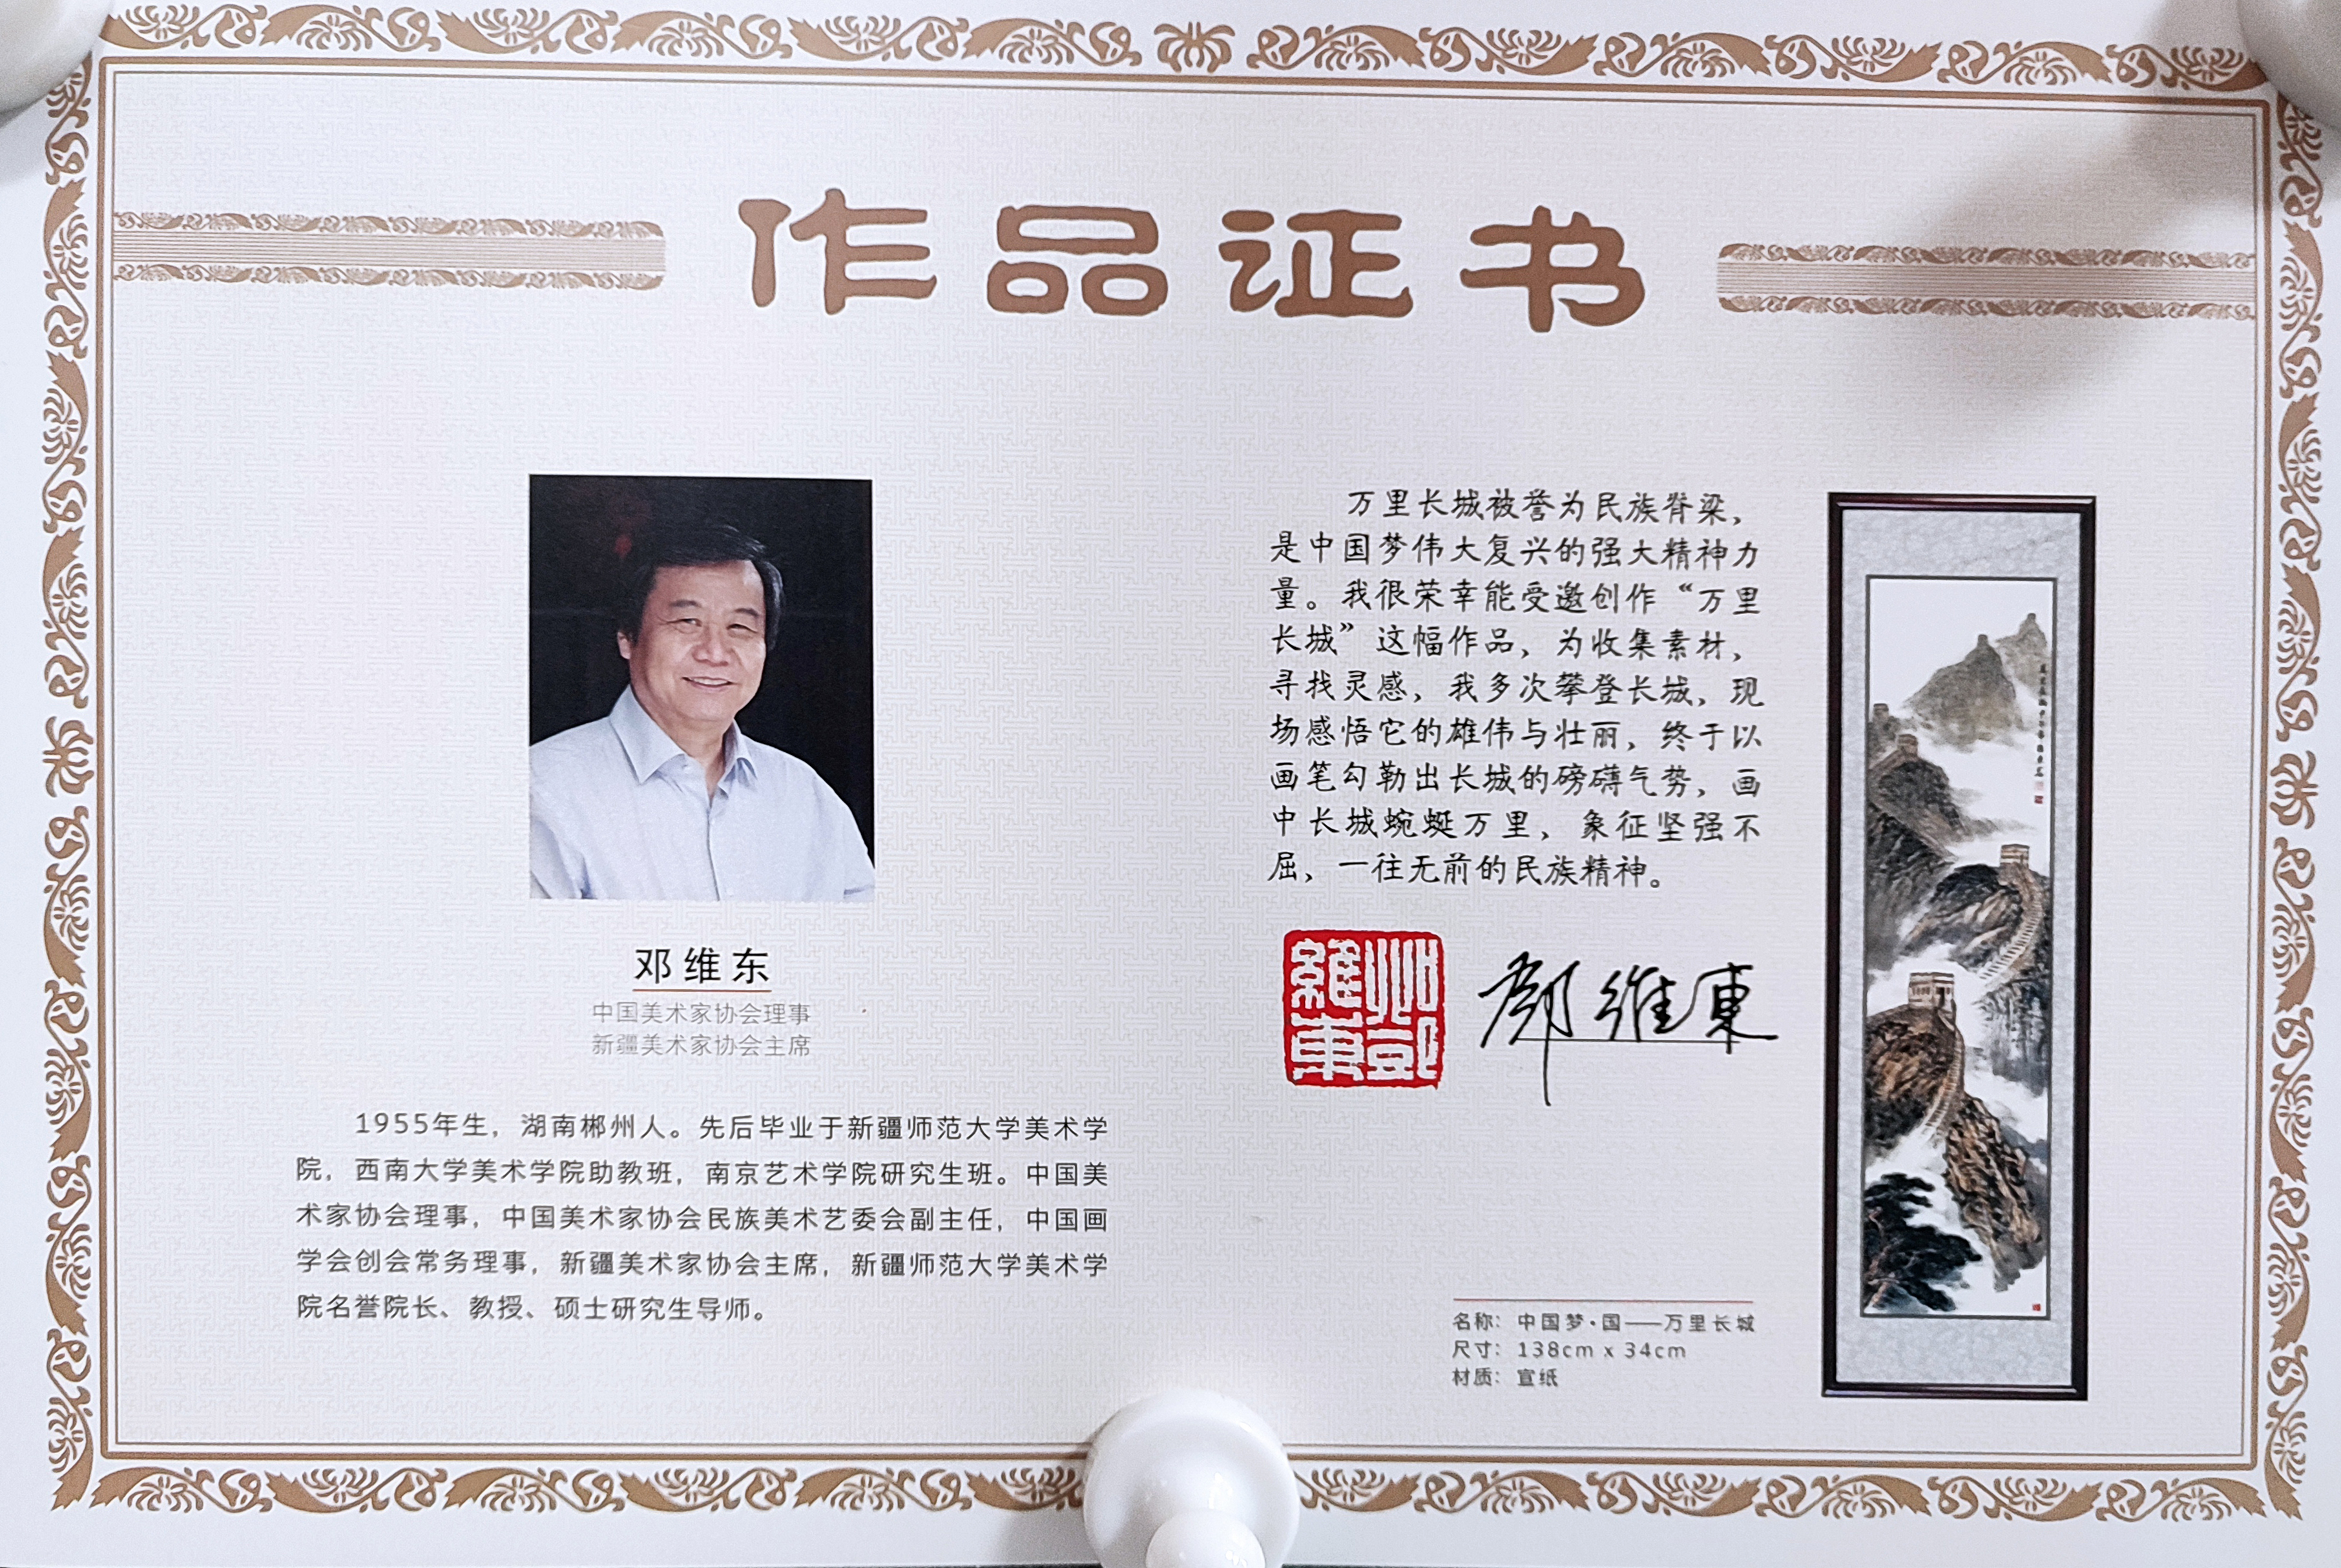 作品证书
邓维东
中国美术家协会理事
新疆美术家协会主席
1955年生，湖南郴州人。先后毕业于新疆师范大学美术学
院，西南大学美术学院助教班，南京艺术学院研究生班。中国美
术家协会理事，中国美术家协会民族美术艺委会副主任，中国画
学会创会常务理事，新疆美术家协会主席，新疆师范大学美术学
院名誉院长、教授、硕士研究生导师。
万里长城被誉为民族脊梁，
是中国梦伟大复兴的强大精神力
量。我很荣幸能受邀创作“万里
长城”这幅作品，为收集素材，
寻找灵感，我多次攀登长城，现
场感悟它的雄伟与壮丽，终于以
画笔勾勒出长城的磅礴气势，画
中长城蜿蜒万里，象征坚强不
屈，一往无前的民族精神。
鄧維東
名称：中国梦·国——万里长城
尺寸：138cm x 34cm
材质：宣纸